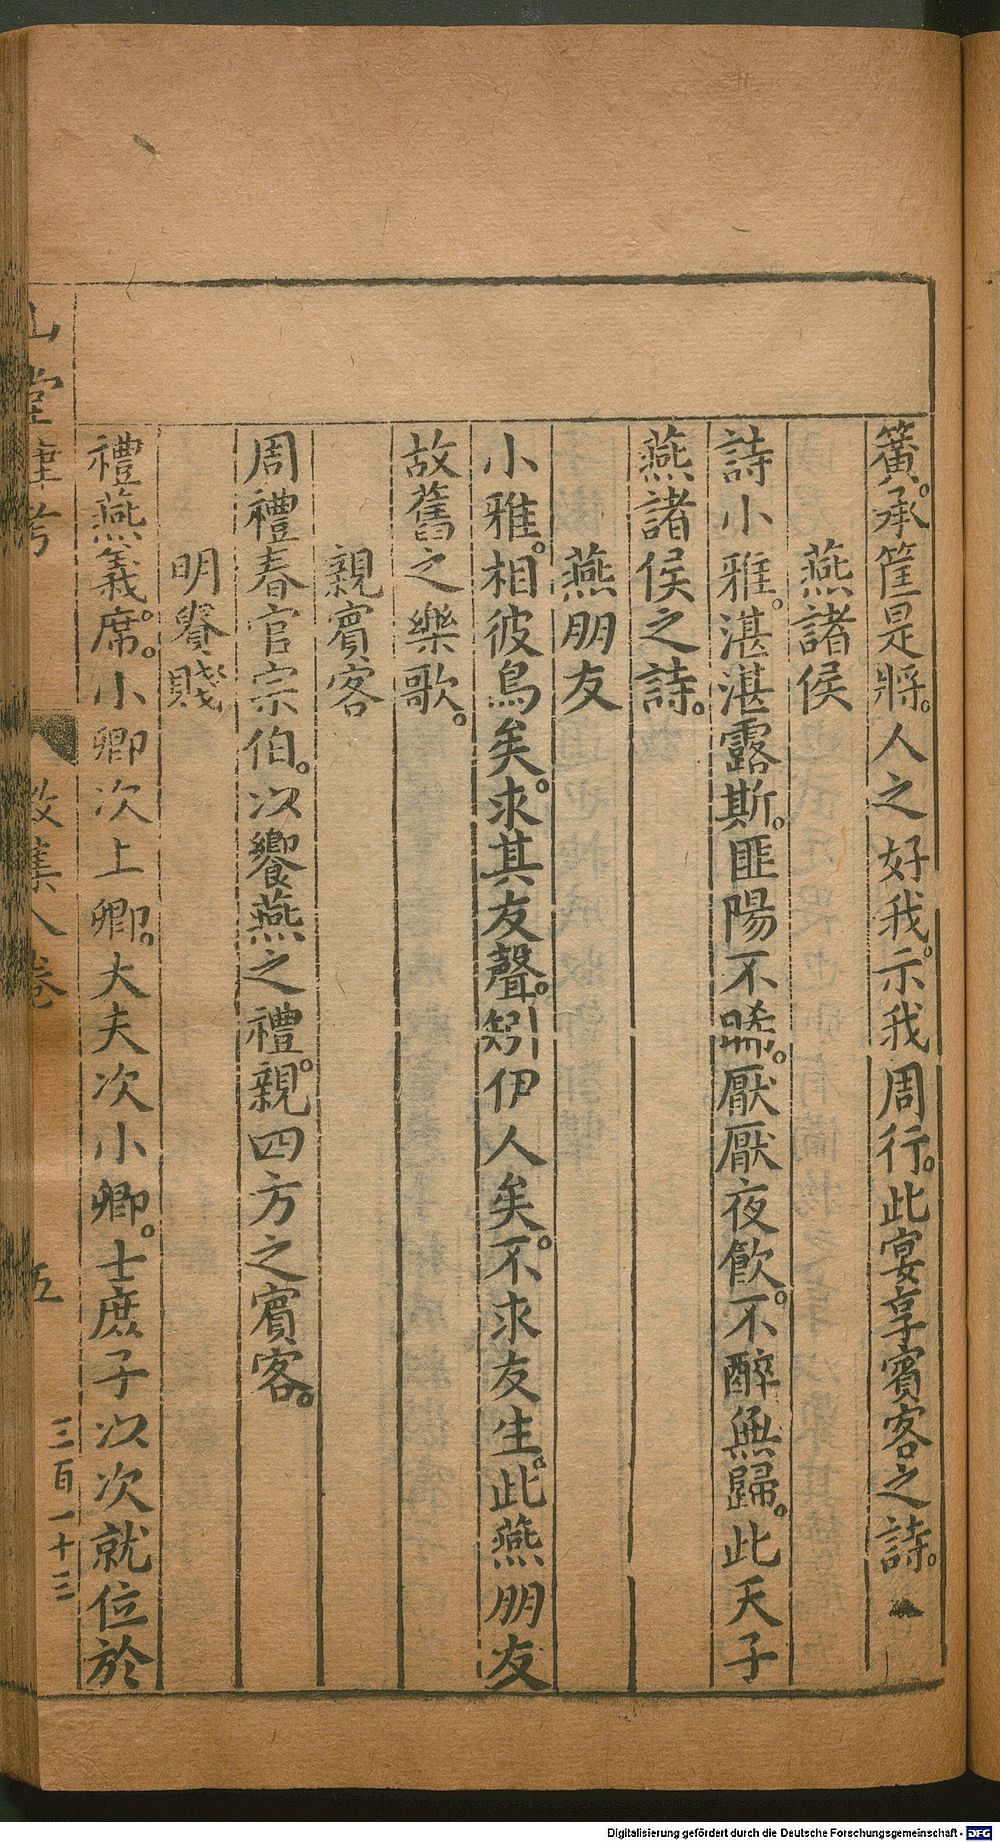 簧。承筐是將。人之好我。示我周行。此宴享賓客之詩。
燕諸侯
詩小雅。湛湛露斯。匪陽不晞。厭厭夜飲。不醉無歸。此天子
燕諸侯之詩。
燕朋友
小雅。相彼鳥矣。求其友聲。矧伊人矣。不求友生。此燕朋友
故舊之樂歌。
親賓客
周禮春官宗伯。以饗燕之禮。親四方之賓客。
明貴賤
禮燕義。席。小卿次上卿。大夫次小卿。士庶子以次就位於
山堂肆考
徵集八卷
五
三百一十三
Digitalisierung gefördert durch die Deutsche Forschungsgemeinschaft - DFG